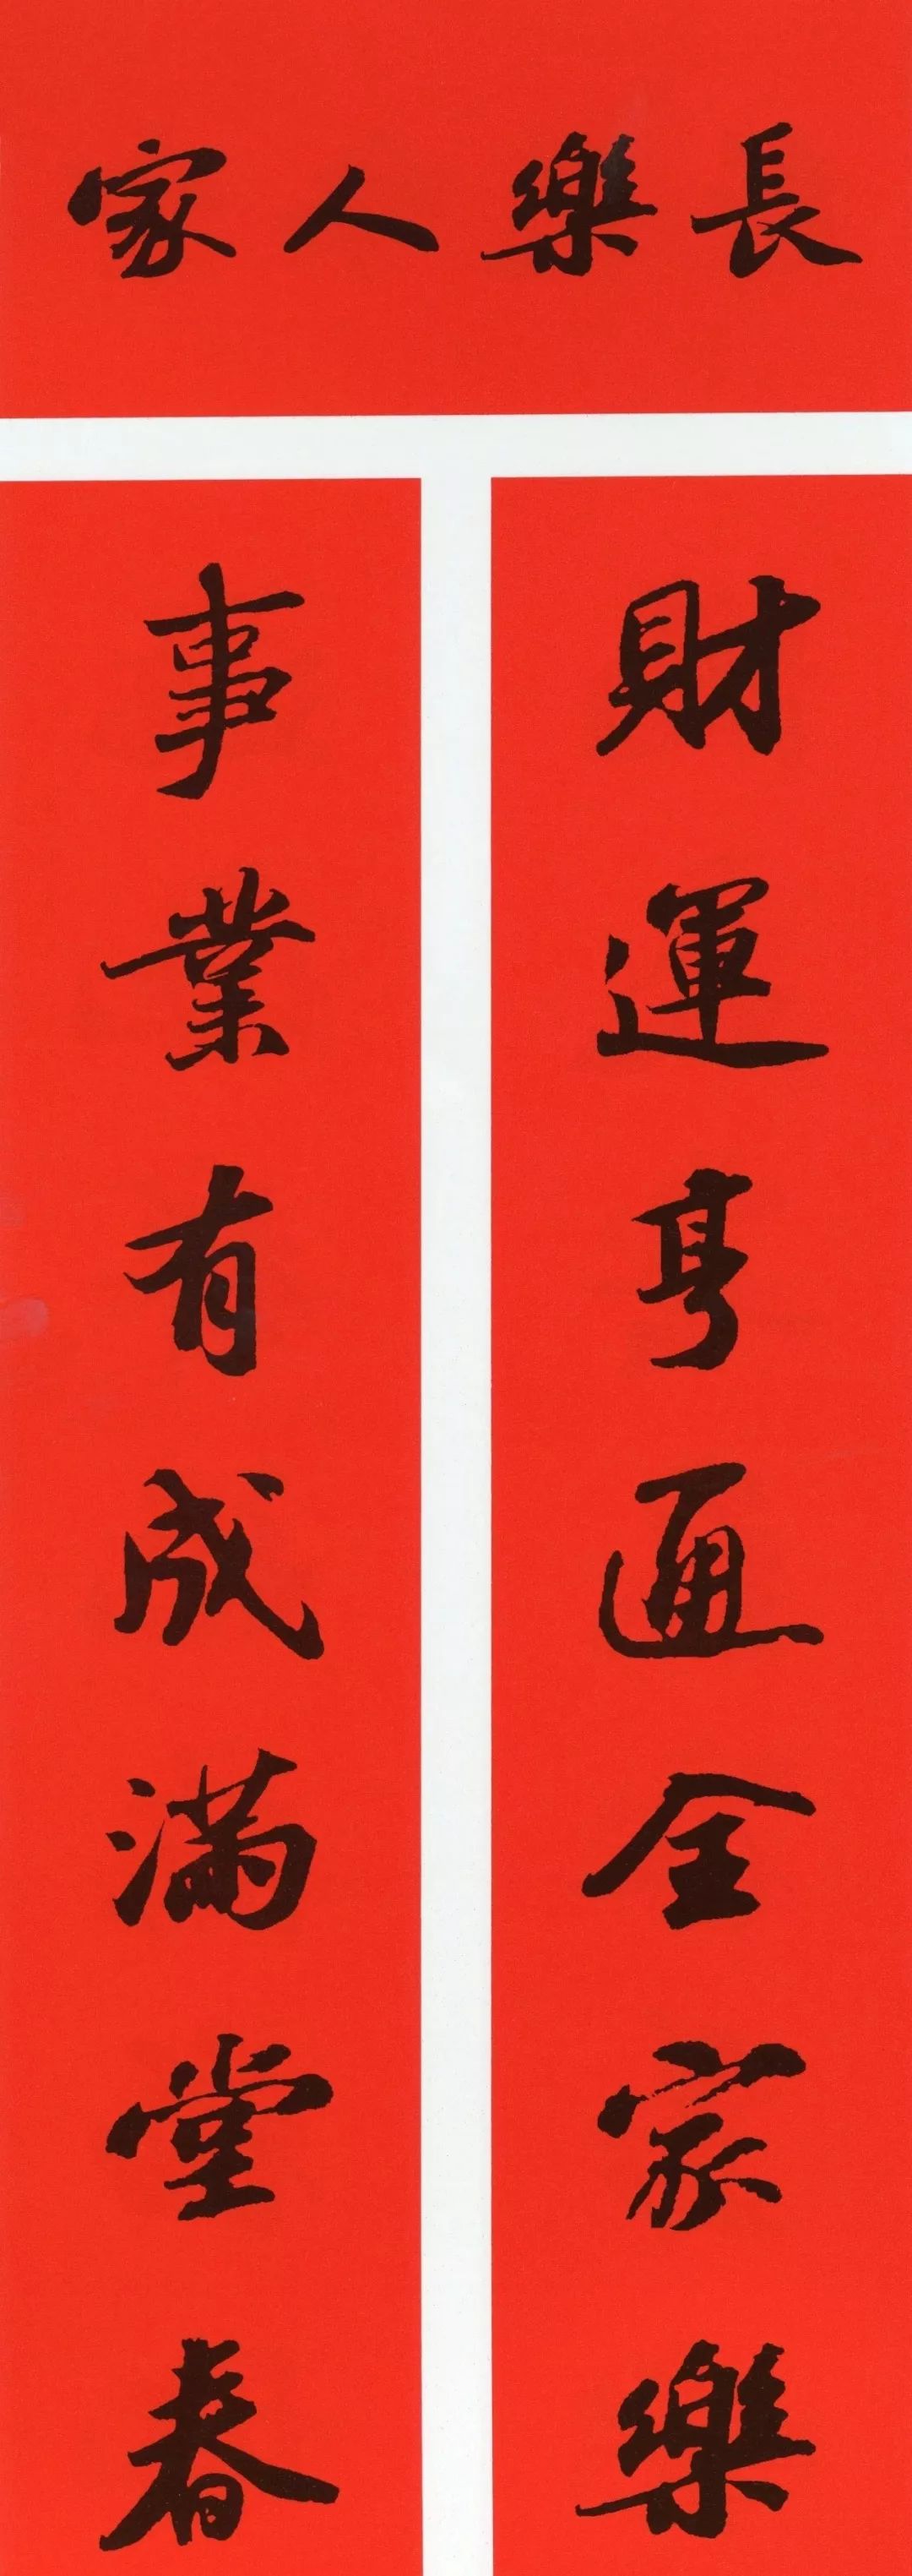 長樂人家
財運亨通全家樂
事業有成滿堂春